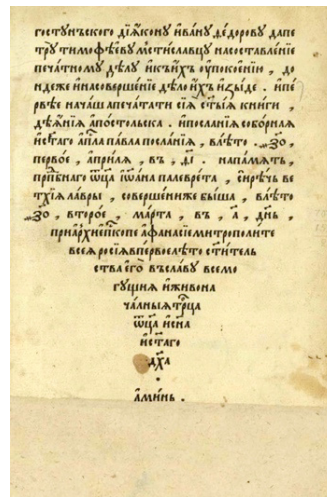 гостꙋнъского дїѧ́конꙋ и҆ва́нꙋ ѳе́доровꙋ дапе
трꙋ тимоѳѣ́евꙋ мстиславцꙋ насоставле́нїе
печа́тномꙋ дѣ́лꙋ и҆къи́хъ ᲂу҆поко́енїю, до
ндеже и҆насоверше́нїе дѣло и҆́хъ и҆зы́де. и҆пе́
рвѣе нача́ша печа́тати сїѧ̀ ст҃ы́ѧ кни́ги,
дѣѧ́нїѧ а҆по́стольска. и҆посла́нїѧ собо́рнаѧ
и҆ст҃аго а҆п҃ла па́вла посла́нїѧ, влѣ́то. ҂зо,
пе́рвое, а҆прі́лѧ, въ, ѳ҃і. напа́мѧть,
прп҇бнаго ѻ҆ц҃а̀ і҆ѡа́нна палевре́та, си́рѣчь ве
тхї́ѧ ла́вры, соверше́ниже бы́ша, влѣ́то
҂зо, второ́е, ма́рта, въ, а҃, днь,
приа҆рхїеп҇кпе а҆ѳана́сиемитропо́лите
всеѧ̀росїѧ въпе́рвоелѣ́то ст҃и́тель
ства є҆гѡ̀ въсла́вꙋ всемо
гꙋщиѧ и҆живона
ча́лныѧ тр҇ца
ѻ҆ц҃а и҆сн҃а
и҆ст҃аго
дх҃а
а҆ми́нь.